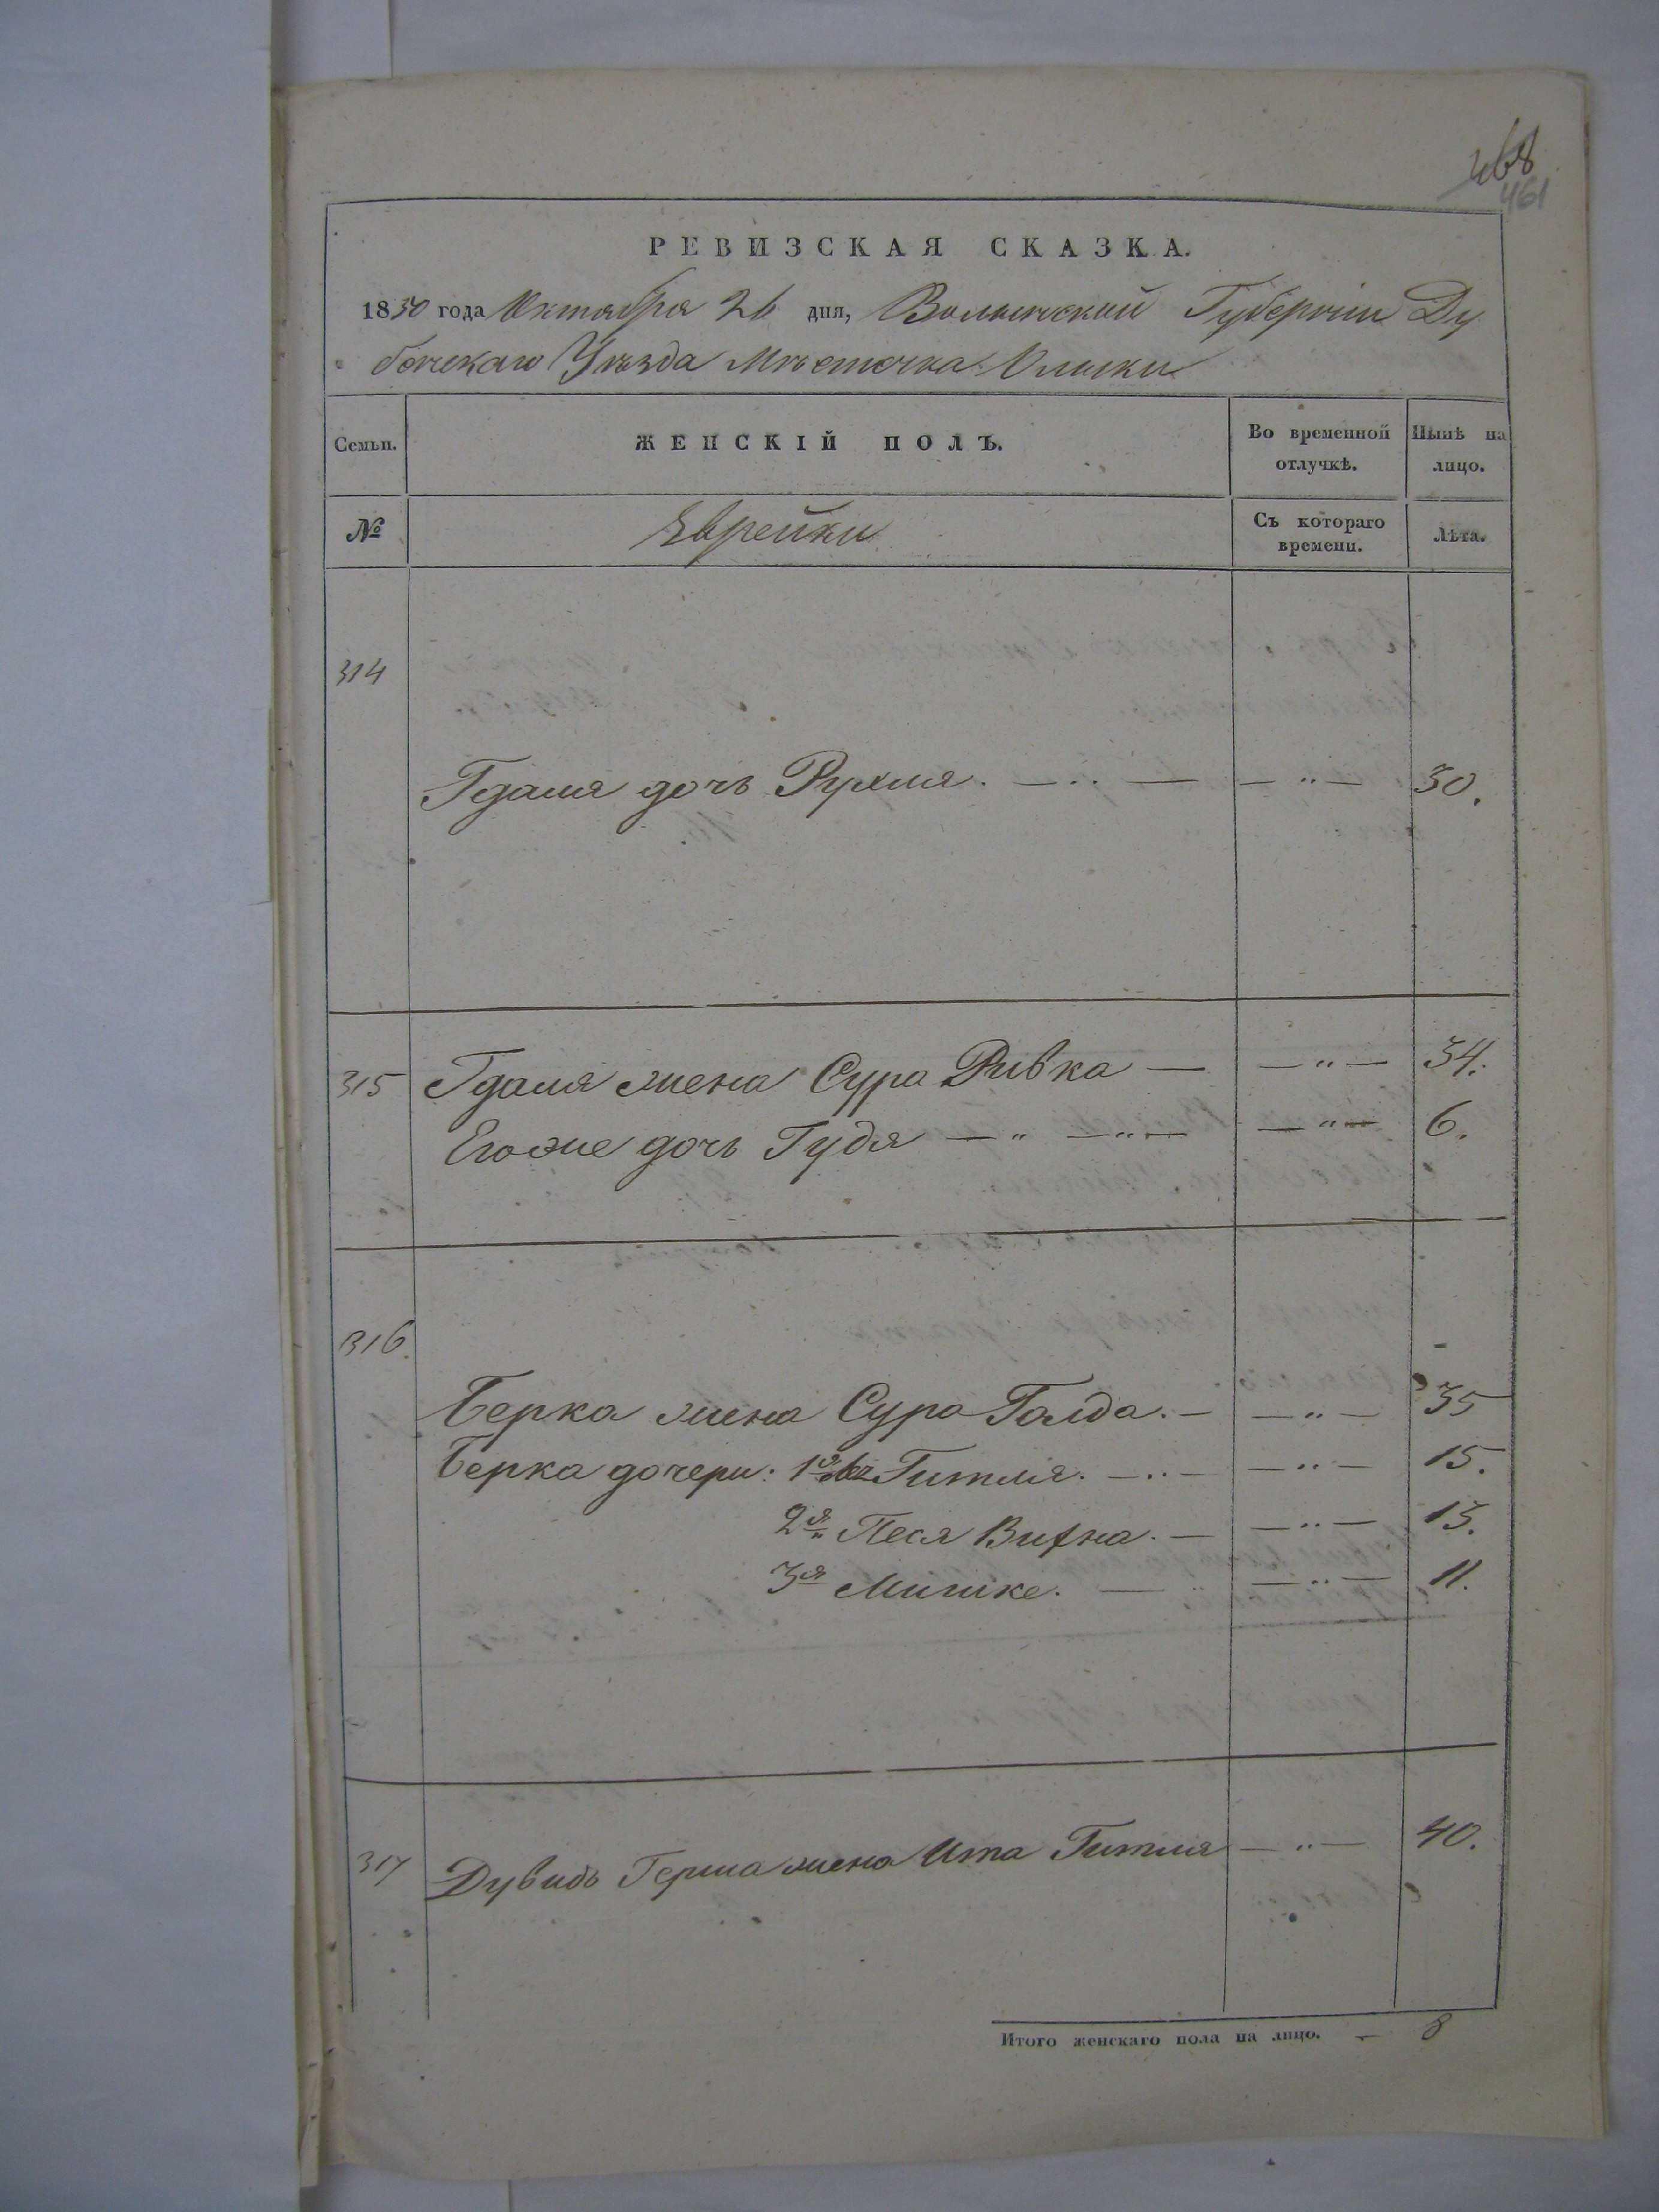 468
461
РЕВИЗСКАЯ СКАЗКА.
1850 года Октября 26 дня, Волынской Губернiи Ду
бенскаго Уѣзда Мѣстечка Олыки
Семьи. ЖЕНСКIЙ ПОЛЪ. Во временной отлучкѣ. Нынѣ на лицо.
№ Еврейки Съ котораго времени. Лѣта.
314
Гдаля дочь Рухля. — „ — — „ — 30.
315 Гдаля жена Сура Ривка — — „ — 34.
Егоже дочь Гудя — „ — „ — — „ — 6.
316.
Берка жена Сура Голда. — — „ — 35
Берка дочери: 1я Гитля. — „ — — „ — 15.
2я Песя Витна. — — „ — 13.
3я Милке. — — „ — 11.
317 Дувидъ Герша жена Ита Гитля — „ — 40.
Итого женскаго пола на лицо. — 8